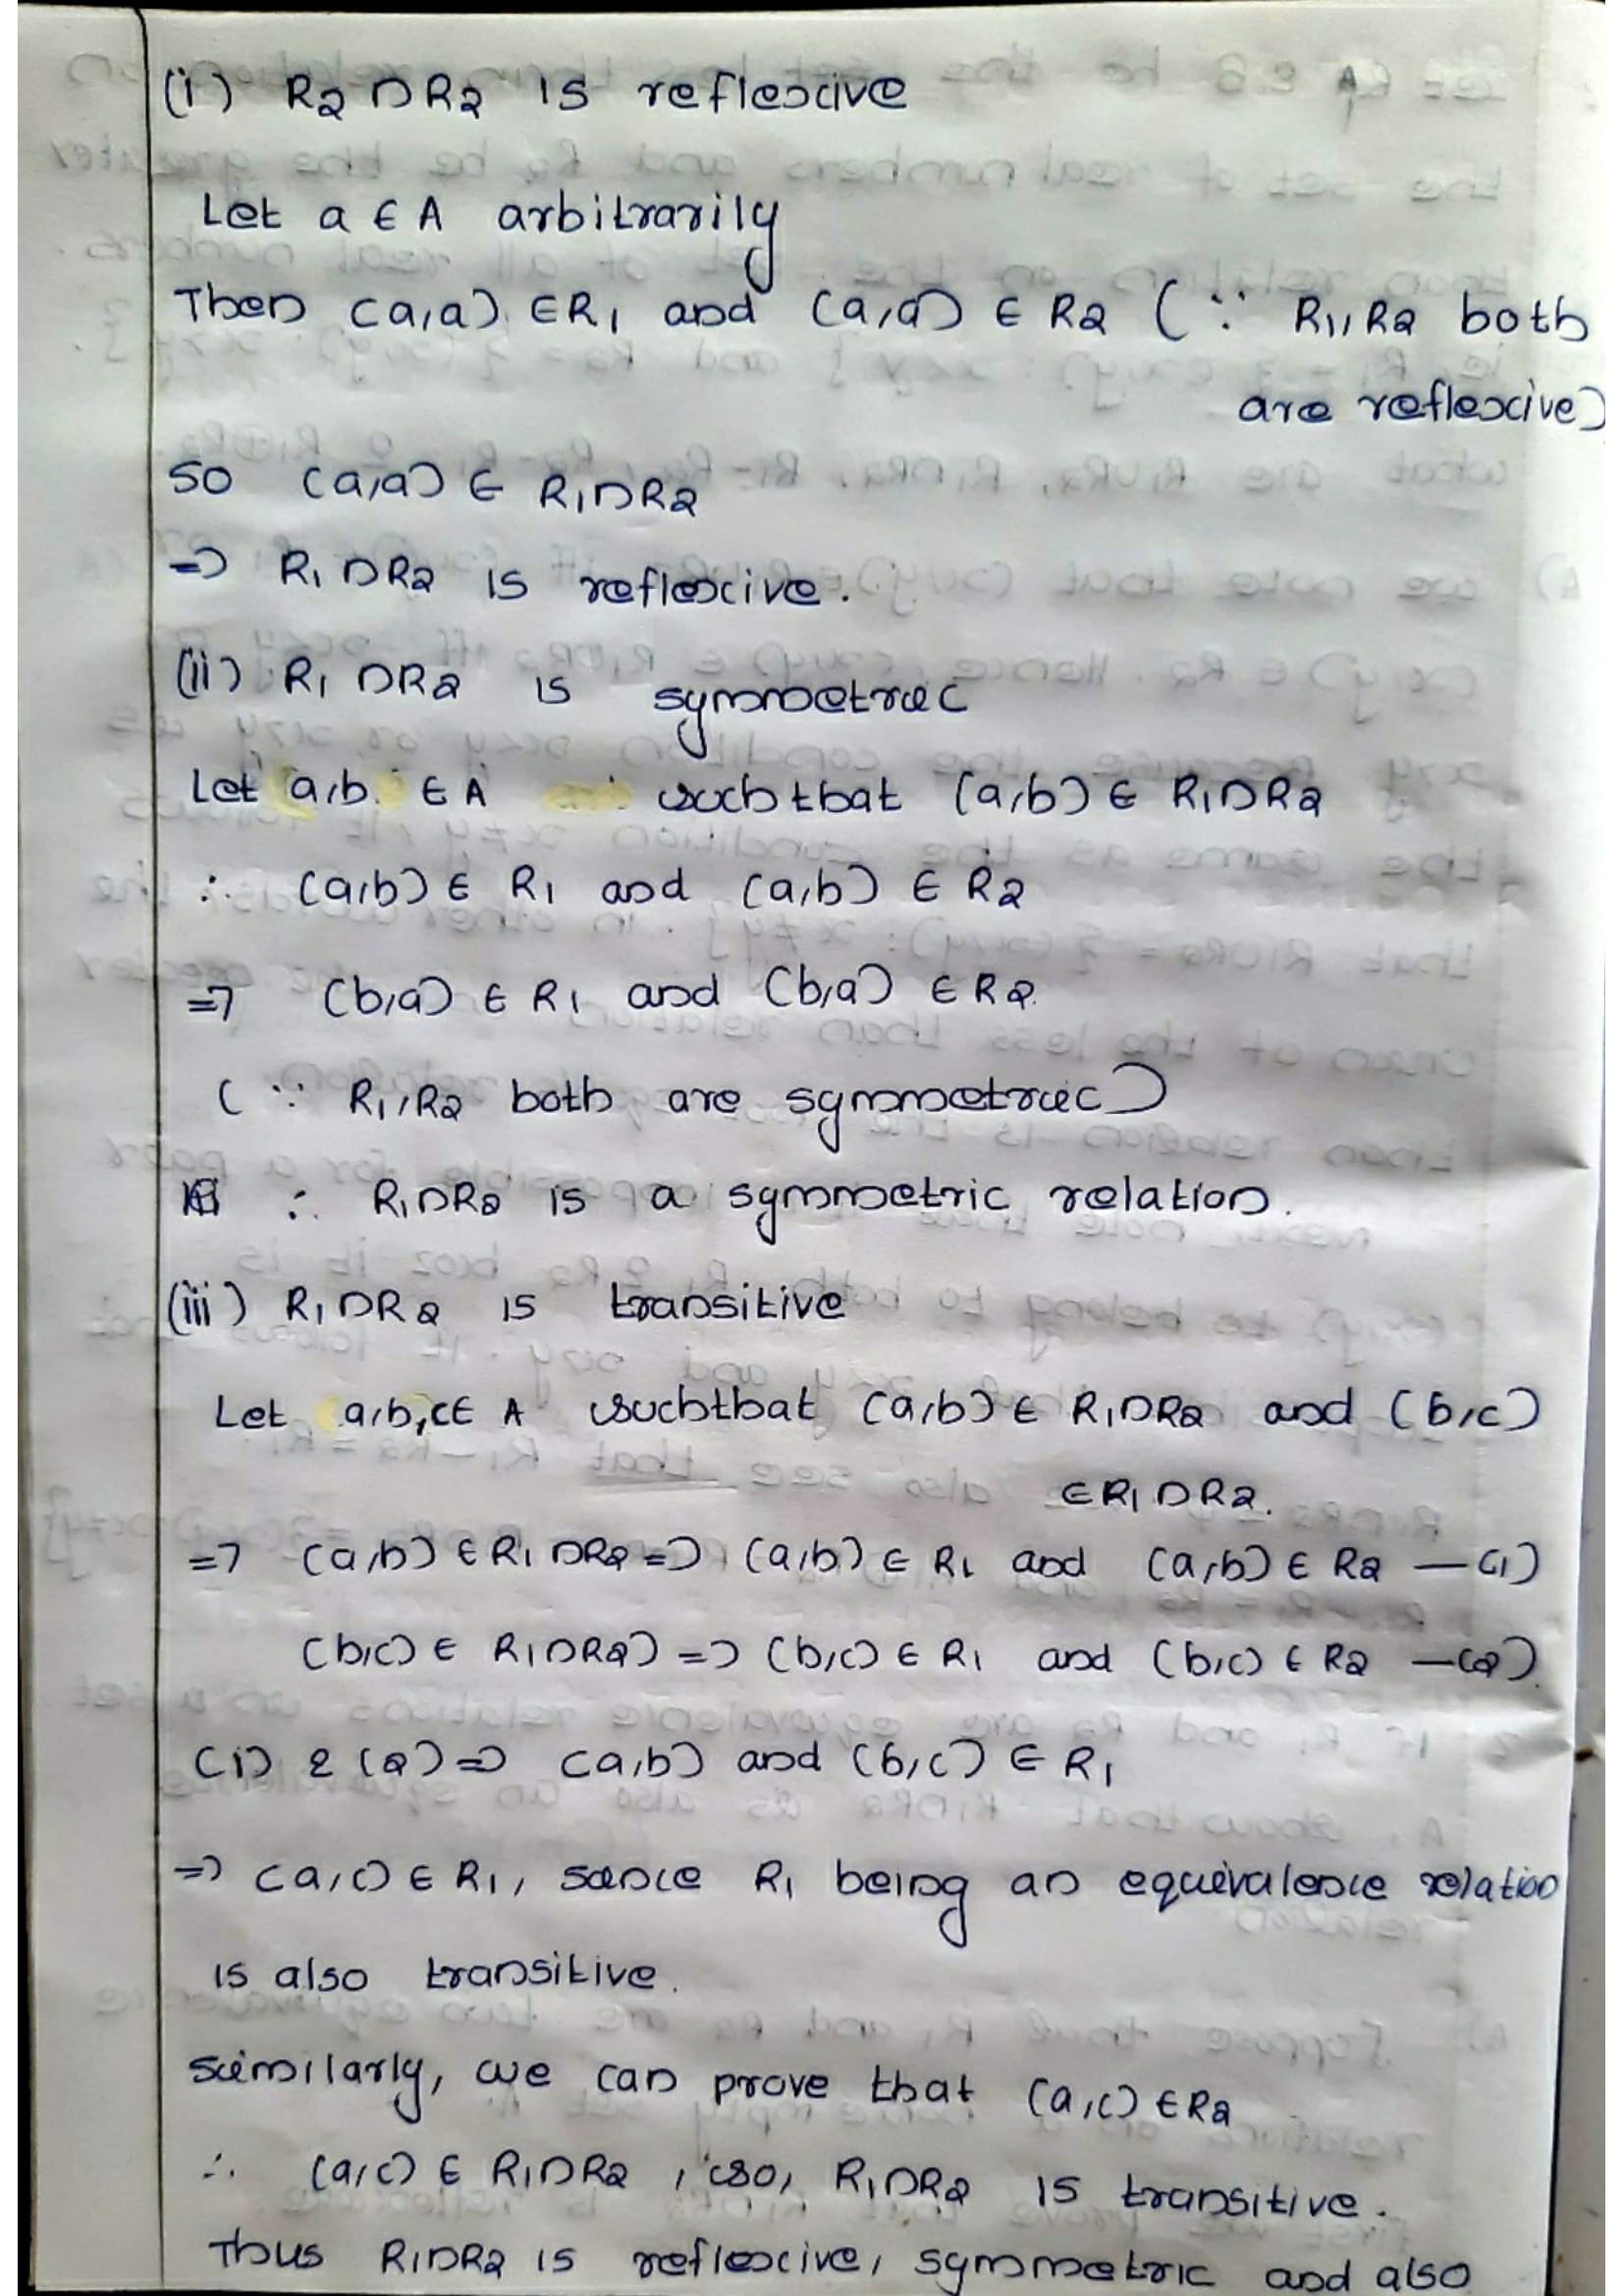 (i) R2 ∩ R2 is reflexive
Let a ∈ A arbitrarily
Then (a,a) ∈ R1 and (a,a) ∈ R2 (∵ R1, R2 both
are reflexive)
so (a,a) ∈ R1∩R2
=> R1 ∩R2 is reflexive.
(ii) R1 ∩R2 is symmetric
Let a,b ∈ A such that (a,b) ∈ R1∩R2
∴ (a,b) ∈ R1 and (a,b) ∈ R2
=> (b,a) ∈ R1 and (b,a) ∈ R2.
(∵ R1, R2 both are symmetric)
∴ R1∩R2 is a symmetric relation.
(iii) R1∩R2 is transitive
Let a,b,c∈ A such that (a,b) ∈ R1∩R2 and (b,c)
∈R1∩R2.
=> (a,b) ∈ R1 ∩R2 => (a,b) ∈ R1 and (a,b) ∈ R2 —(1)
(b,c) ∈ R1∩R2) => (b,c) ∈ R1 and (b,c) ∈ R2 —(2).
(1) & (2) => (a,b) and (b,c) ∈ R1
=> (a,c) ∈ R1, since R1 being an equivalence relation
is also transitive.
similarly, we can prove that (a,c) ∈R2
∴ (a,c) ∈ R1∩R2, so, R1∩R2 is transitive.
Thus R1∩R2 is reflexive, symmetric and also